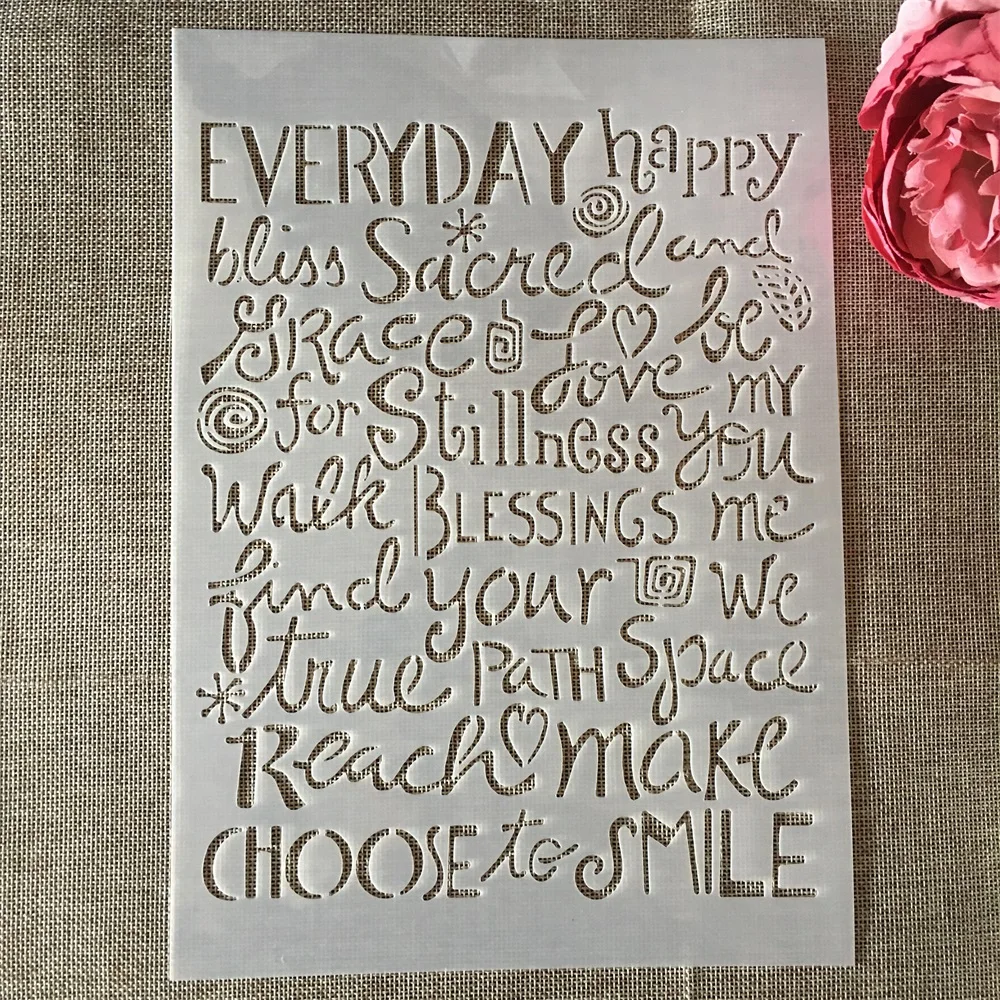 EVERYDAY happy
bliss Sacred and
GRace Love be
for Stillness my
you
Walk BLESSINGS me
find your we
true PaTH Space
Reach make
CHOOSE to SMILE